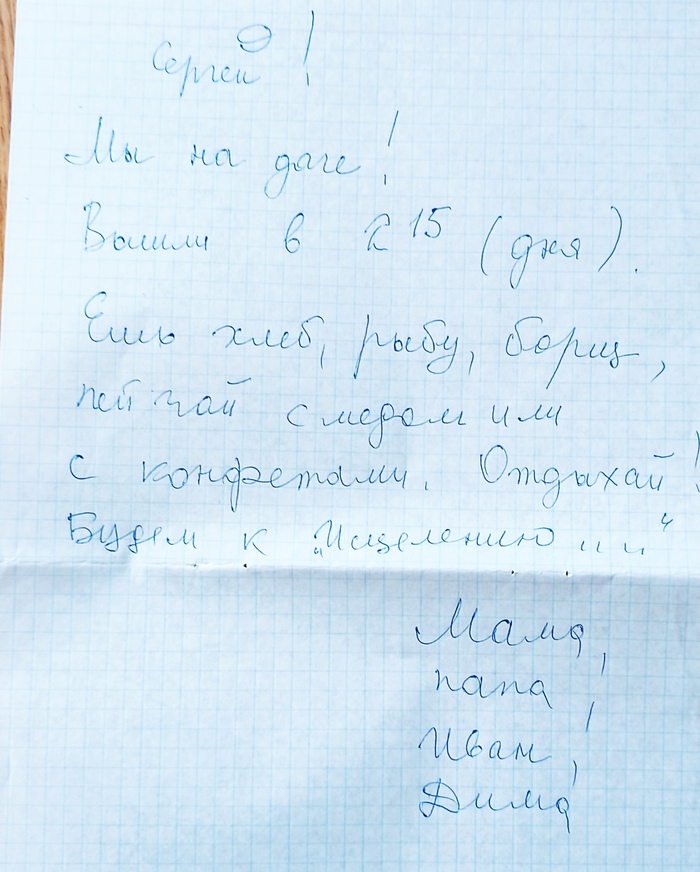 Сергей!
Мы на даче!
Вышли в 2 15 (дня).
Ешь хлеб, рыбу, борщ,
пей чай с медом или
с конфетами. Отдыхай!
Будем к „Исцелению....“
Мама,
папа,
Иван,
Дима